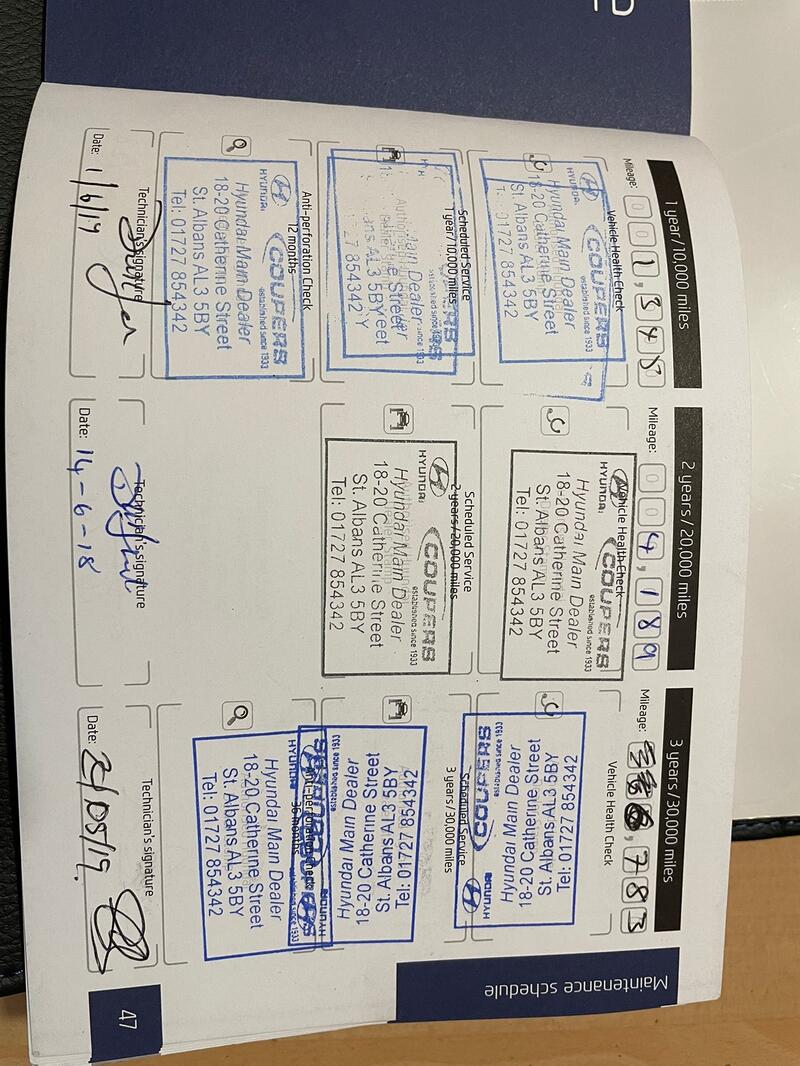 1 year/10,000 miles
Mileage: 001,348
Vehicle Health Check
COUPERS
established since 1933
HYUNDAI
Hyundai Main Dealer
18-20 Catherine Street
St. Albans AL3 5BY
727 854342
Scheduled Service
1 year/10,000 miles
Main Dealer
established since 1933
AL3 5BY
854342
Anti-perforation Check
12 months
COUPERS
established since 1933
HYUNDAI
Hyundai Main Dealer
18-20 Catherine Street
St. Albans AL3 5BY
Tel: 01727 854342
Technician's signature
Date:
2 years/20,000 miles
Mileage: 004,189
Vehicle Health Check
COUPERS
established since 1933
HYUNDAI
Hyundai Main Dealer
18-20 Catherine Street
St. Albans AL3 5BY
Tel: 01727 854342
Scheduled Service
2 years/20,000 miles
COUPERS
established since 1933
HYUNDAI
Hyundai Main Dealer
18-20 Catherine Street
St. Albans AL3 5BY
Tel: 01727 854342
Technician's signature
Date: 14-6-18
3 years/30,000 miles
Mileage: ,783
Vehicle Health Check
COUPERS
established since 1933
HYUNDAI
Hyundai Main Dealer
18-20 Catherine Street
St. Albans AL3 5BY
Tel: 01727 854342
Scheduled Service
3 years/30,000 miles
HYUNDAI
established since 1933
Hyundai Main Dealer
18-20 Catherine Street
St. Albans AL3 5BY
Tel: 01727 854342
Anti-perforation Check
36 months
HYUNDAI
established since 1933
Hyundai Main Dealer
18-20 Catherine Street
St. Albans AL3 5BY
Tel: 01727 854342
Technician's signature
Date:
Maintenance schedule
47